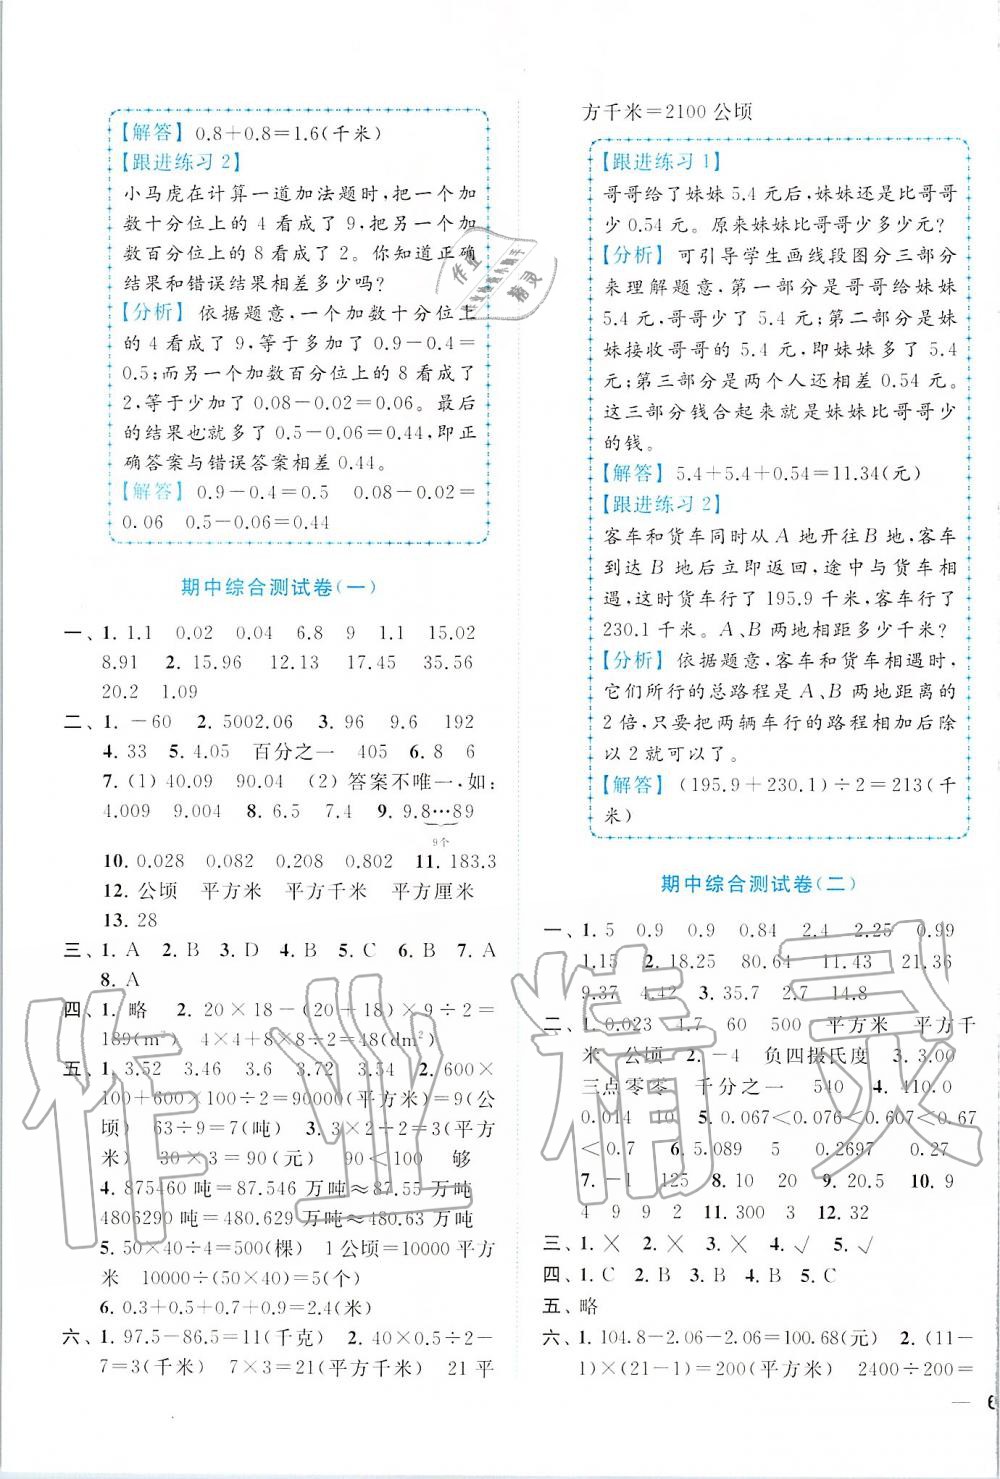 【解答】 0.8＋0.8＝1.6(千米)
【跟进练习 2】
小马虎在计算一道加法题时,把一个加
数十分位上的 4 看成了 9,把另一个加
数百分位上的 8 看成了 2。你知道正确
结果和错误结果相差多少吗?
【分析】 依据题意,一个加数十分位上
的 4 看成了 9,等于多加了 0.9－0.4＝
0.5;而另一个加数百分位上的 8 看成了
2,等于少加了 0.08－0.02＝0.06。最后
的结果也就多了 0.5－0.06＝0.44,即正
确答案与错误答案相差 0.44。
【解答】 0.9－0.4＝0.5 0.08－0.02＝
0.06 0.5－0.06＝0.44
期中综合测试卷(一)
一、1. 1.1 0.02 0.04 6.8 9 1.1 15.02
8.91 2. 15.96 12.13 17.45 35.56
20.2 1.09
二、1. －60 2. 5002.06 3. 96 9.6 192
4. 33 5. 4.05 百分之一 405 6. 8 6
7. (1) 40.09 90.04 (2) 答案不唯一,如:
4.009 9.004 8. 6.5 7.4 9. 9.8⋯89
9个
10. 0.028 0.082 0.208 0.802 11. 183.3
12. 公顷 平方米 平方千米 平方厘米
13. 28
三、1. A 2. B 3. D 4. B 5. C 6. B 7. A
8. A
四、1. 略 2. 20×18－(20＋18)×9÷2＝
189(m²) 4×4＋8×8÷2＝48(dm²)
五、1. 3.52 3.46 3.6 3.72 3.54 2. 600×
100＋600×100÷2＝90000(平方米)＝9(公
顷) 63÷9＝7(吨) 3. 3×2－2＝3(平方
米) 30×3＝90(元) 90＜100 够
4. 875460 吨＝87.546 万吨≈87.55 万吨
4806290 吨＝480.629 万吨≈480.63 万吨
5. 50×40÷4＝500(棵) 1公顷＝10000 平方
米 10000÷(50×40)＝5(个)
6. 0.3＋0.5＋0.7＋0.9＝2.4(米)
六、1. 97.5－86.5＝11(千克) 2. 40×0.5÷2－
7＝3(千米) 7×3＝21(平方千米) 21 平
方千米＝2100 公顷
【跟进练习 1】
哥哥给了妹妹 5.4 元后,妹妹还是比哥哥
少 0.54 元。原来妹妹比哥哥少多少元?
【分析】 可引导学生画线段图分三部分
来理解题意,第一部分是哥哥给妹妹
5.4 元,哥哥少了 5.4 元;第二部分是妹
妹接收哥哥的 5.4 元,即妹妹多了 5.4
元;第三部分是两个人还相差 0.54 元。
这三部分钱合起来就是妹妹比哥哥少
的钱。
【解答】 5.4＋5.4＋0.54＝11.34(元)
【跟进练习 2】
客车和货车同时从 A 地开往 B 地,客车
到达 B 地后立即返回,途中与货车相
遇,这时货车行了 195.9 千米,客车行了
230.1 千米。A、B 两地相距多少千米?
【分析】 依据题意,客车和货车相遇时,
它们所行的总路程是 A、B 两地距离的
2 倍,只要把两辆车行的路程相加后除
以 2 就可以了。
【解答】 (195.9＋230.1)÷2＝213(千
米)
期中综合测试卷(二)
一、1. 5 0.9 0.9 0.84 2.4 2.25 0.99
1.15 2. 18.25 80.64 11.43 21.36
9.37 4.42 3. 35.7 2.7 14.8
二、1. 0.023 4.7 60 500 平方米 平方千
米 公顷 2. －4 负四摄氏度 3. 3.00
三点零零 千分之一 540 4. 410.0
0.014 10 5. 0.067＜0.076＜0.607＜0.67
＜0.7 6. 5.089 5 0.2697 0.27
7. －1 125 8. 10 20 9. 20.5 10. 9
4 9 9 2 11. 300 3 12. 32
三、1. × 2. × 3. × 4. √ 5. √
四、1. C 2. B 3. B 4. B 5. C
五、略
六、1. 104.8－2.06－2.06＝100.68(元) 2. (11－
1)×(21－1)＝200(平方米) 2400÷200＝
— 6
作业精灵